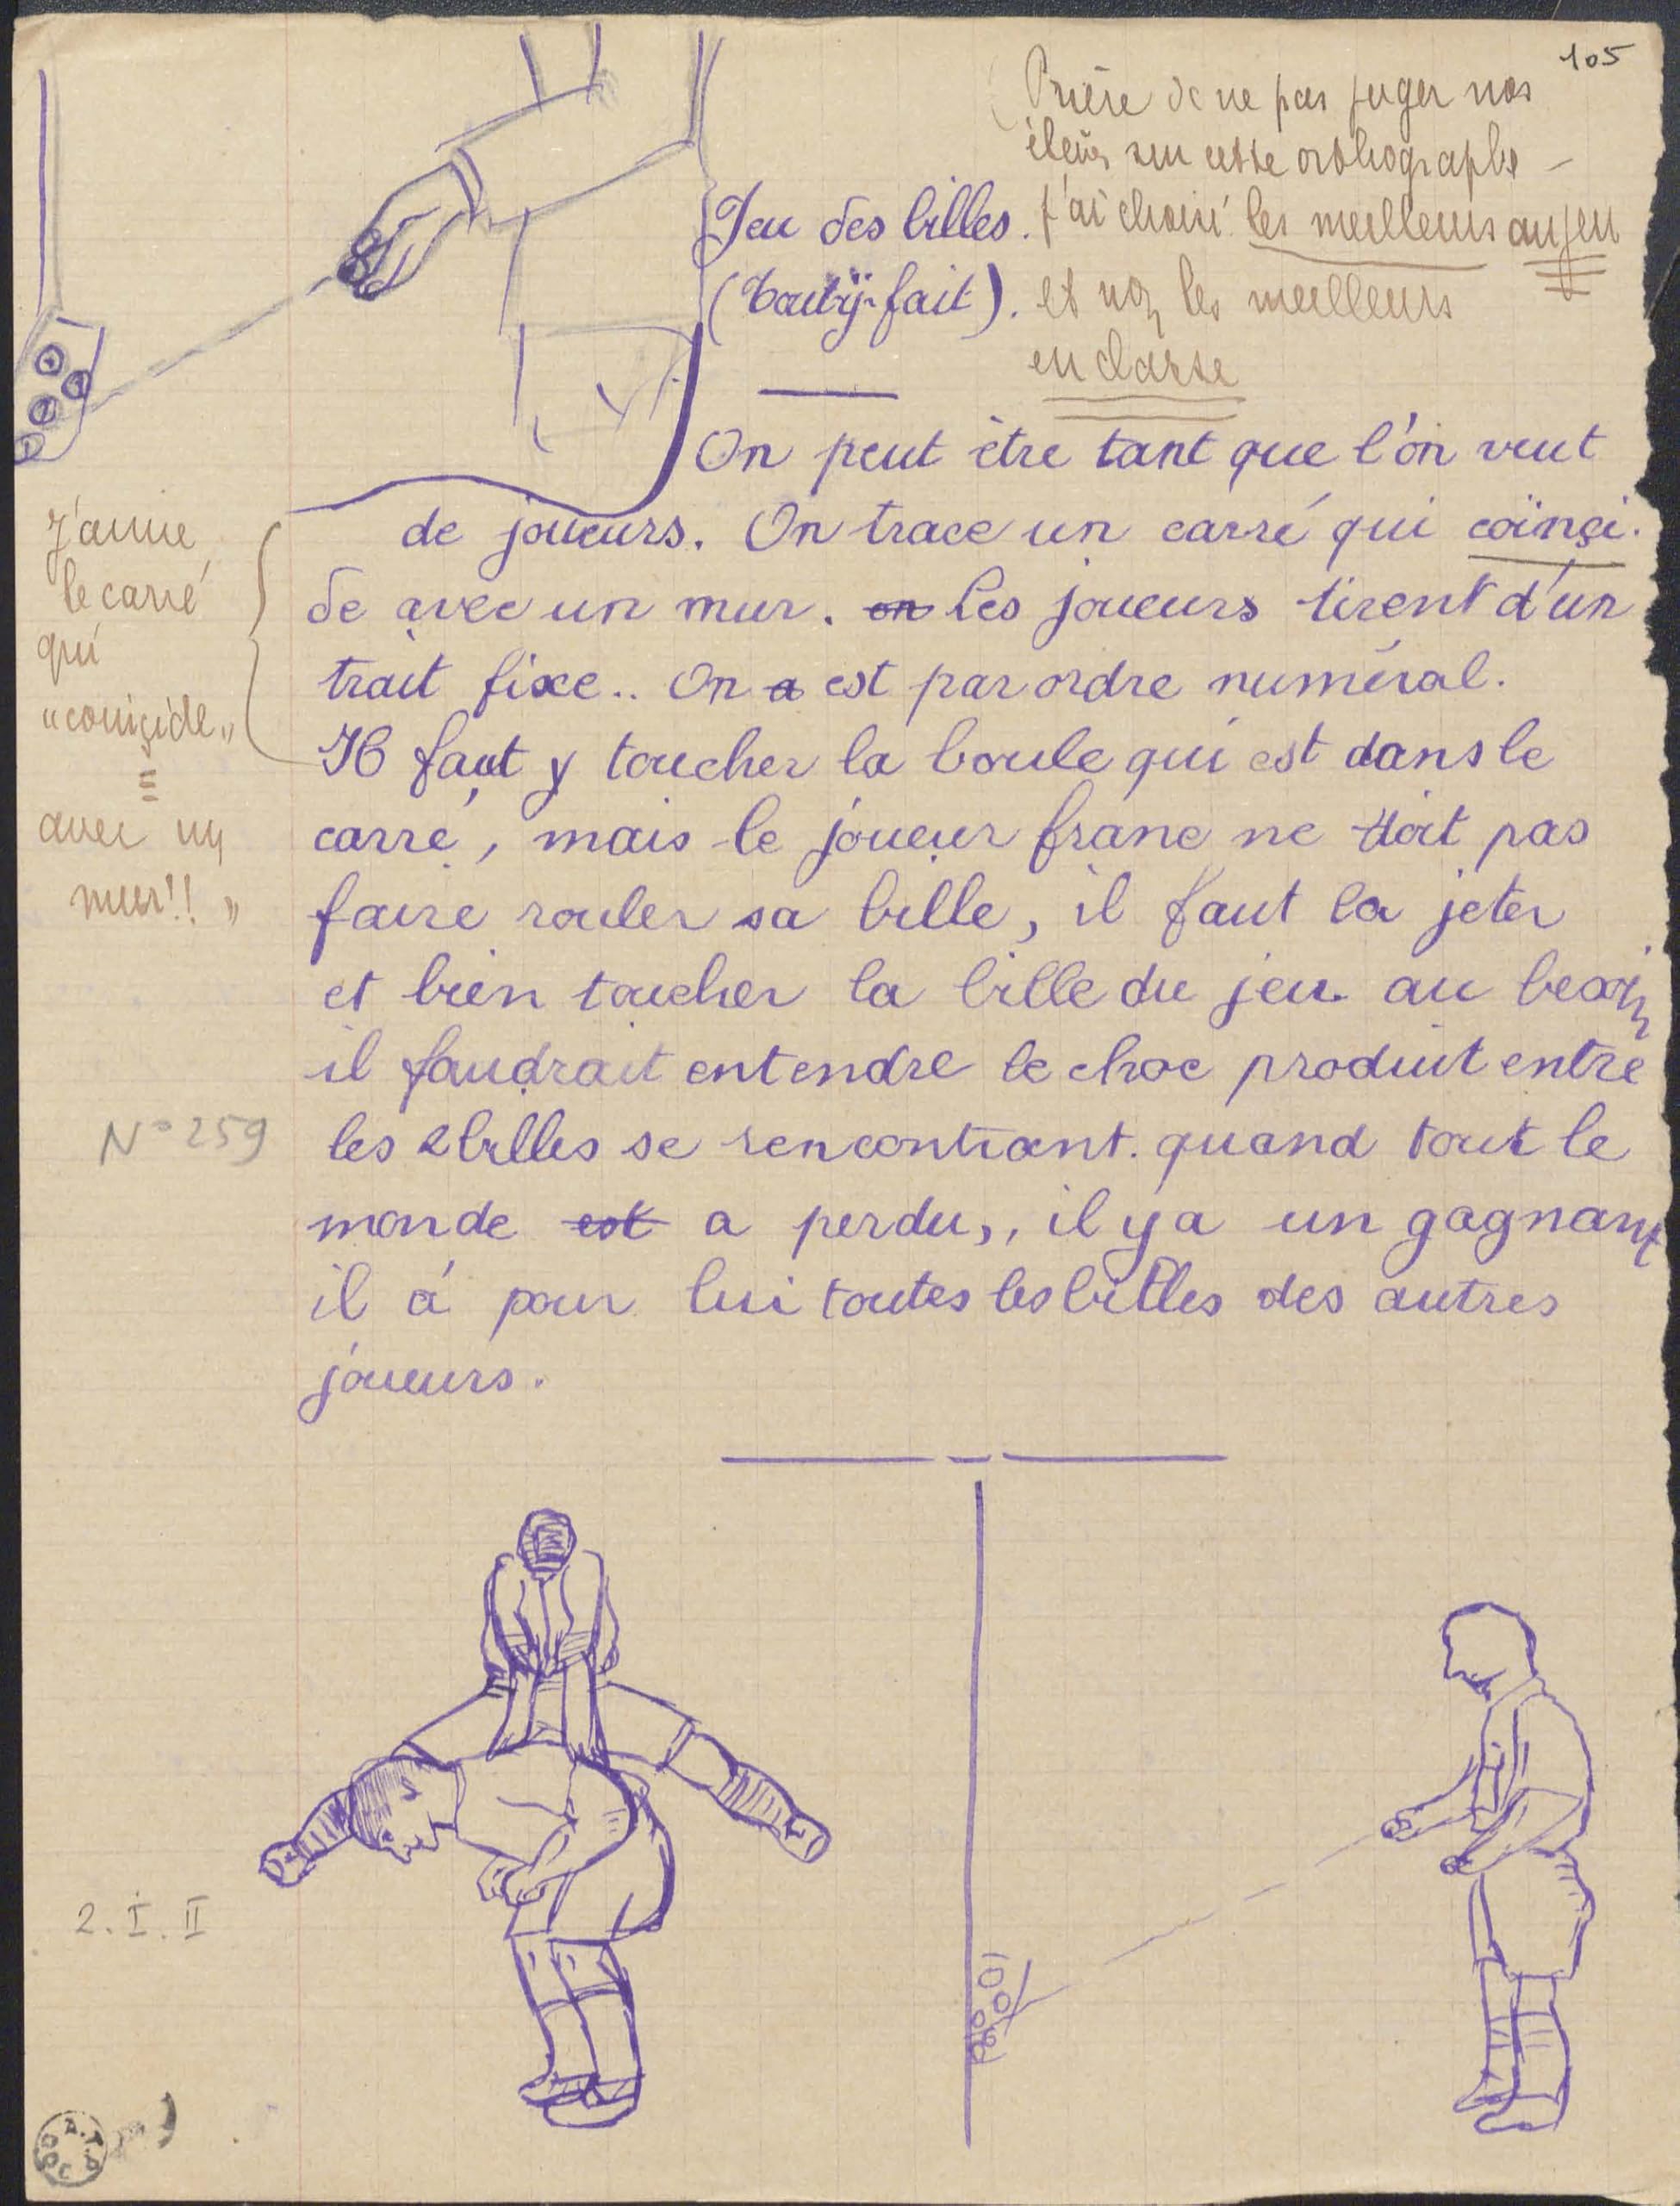 105
Prière de ne pas juger nos
élèves sur cette orthographe –
j'ai choisi les meilleurs au jeu
et non les meilleurs
en classe
Jeu des billes.
On peut être tant que l'on veut
de joueurs. On trace un carré qui coïnçi-
de avec un mur. on Les joueurs tirent d'un
trait fixe.. On a est par ordre numéral.
Il faut y toucher la boule qui est dans le
carré, mais le joueur franc ne doit pas
faire rouler sa bille, il faut la jeter
et bien toucher la bille du jeu. au besoin
il faudrait entendre le choc produit entre
les 2 billes se rencontrant. quand tout le
monde est a perdu,, il y a un gagnant
il á pour lui toutes les billes des autres
joueurs.
J'aime
le carré
qui
"couiçide"
avec un
mur!! "
N° 259
2. I. II
A.T.P
DOC